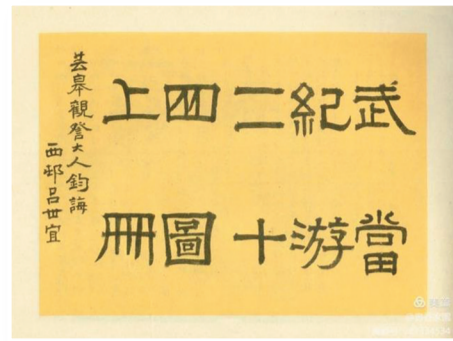 武當
紀游
二十
四圖
上冊
芸皋觀詧大人鈞誨
西邨呂世宜